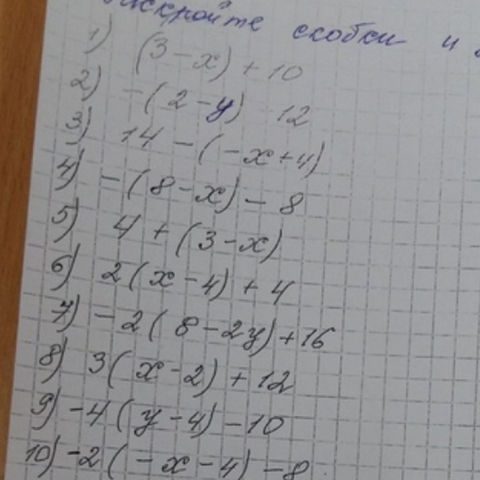 Раскройте скобки и
1) (3-x)+10
2) -(2-y) 12
3) 14-(-x+4)
4) -(8-x)-8
5) 4+(3-x)
6) 2(x-4)+4
7) -2(8-2y)+16
8) 3(x-2)+12
9) -4(y-4)-10
10) -2(-x-4)-8